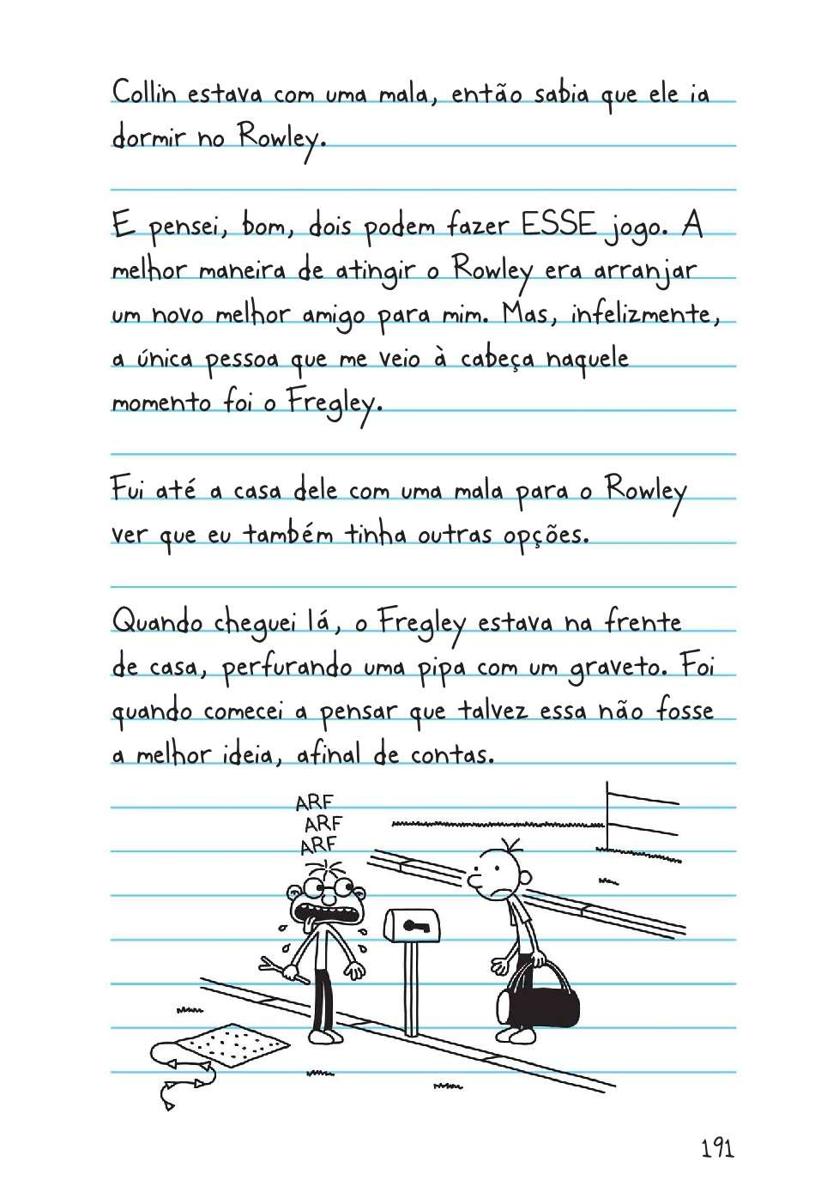 Collin estava com uma mala, então sabia que ele ia
dormir no Rowley.
E pensei, bom, dois podem fazer ESSE jogo. A
melhor maneira de atingir o Rowley era arranjar
um novo melhor amigo para mim. Mas, infelizmente,
a única pessoa que me veio à cabeça naquele
momento foi o Fregley.
Fui até a casa dele com uma mala para o Rowley
ver que eu também tinha outras opções.
Quando cheguei lá, o Fregley estava na frente
de casa, perfurando uma pipa com um graveto. Foi
quando comecei a pensar que talvez essa não fosse
a melhor ideia, afinal de contas.
ARF
ARF
ARF
191